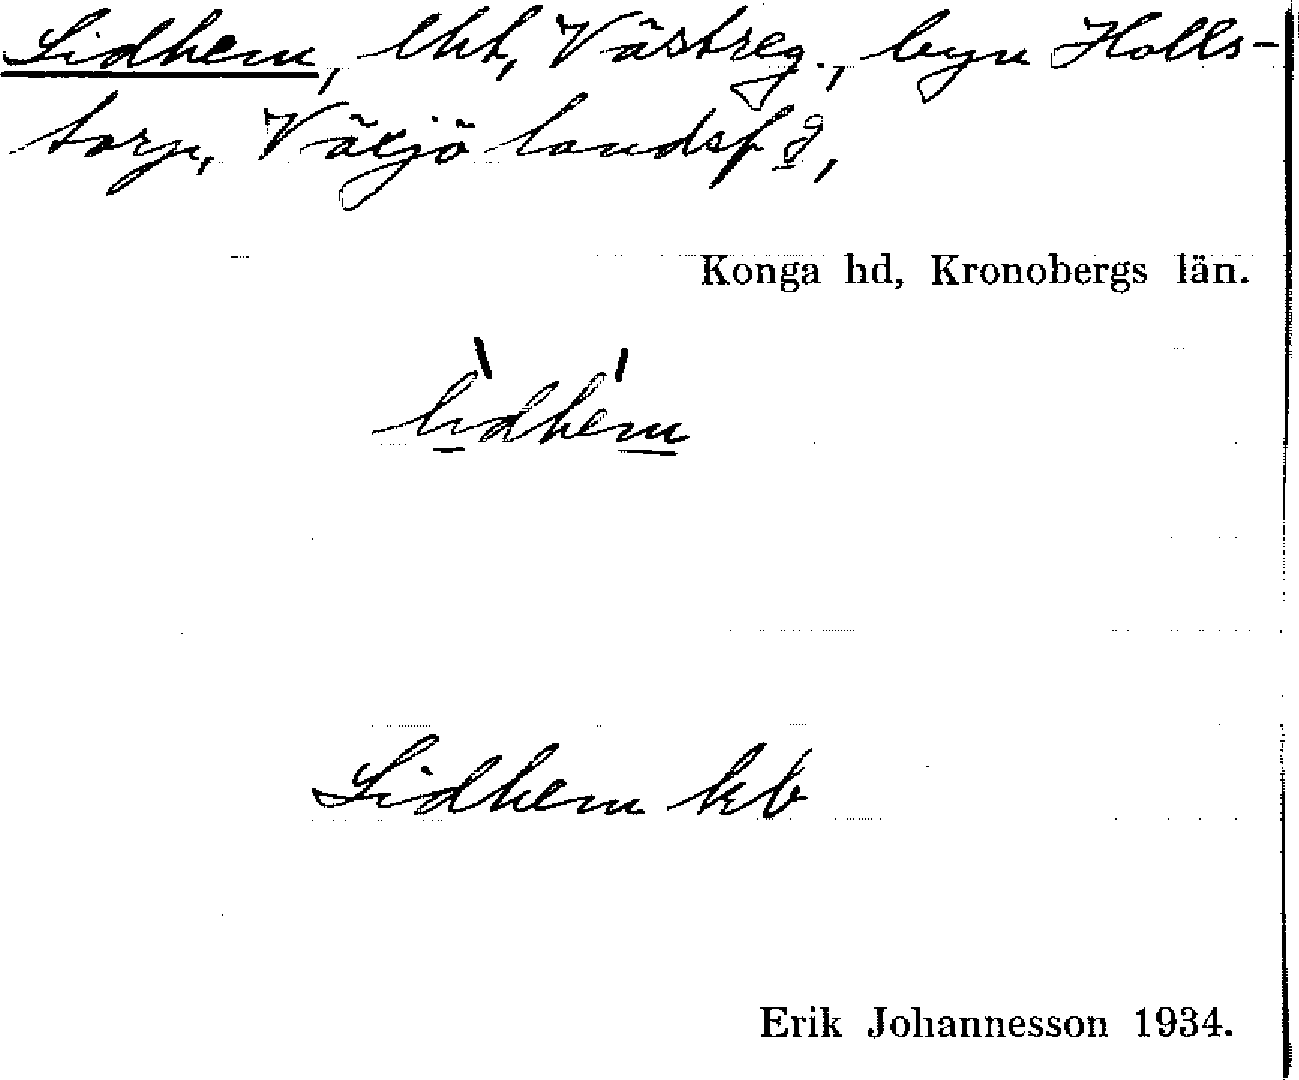 Lidhem, lht, Västreg., byn Holls-
torp, Växjö landsf g,
Konga hd, Kronobergs län.
lìdhém
Lidhem kb
Erik Johannesson 1934.